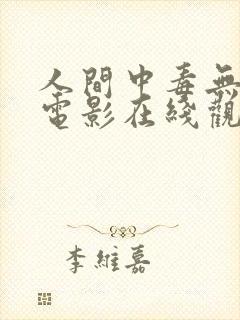 人間中毒無
電影在綫觀
李維嘉